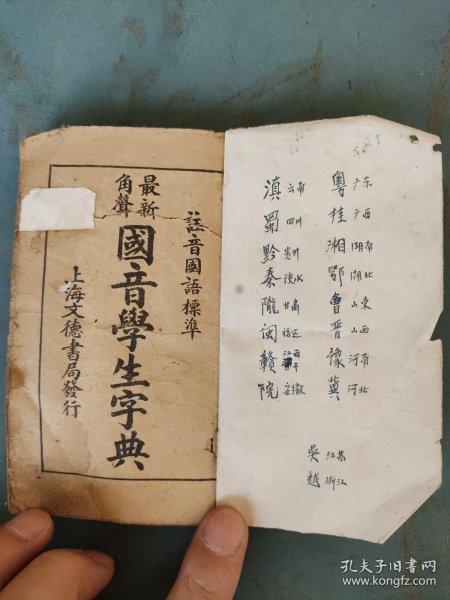 註音國語標準
最新
角聲
國音學生字典
上海文德書局發行
粵 广东
桂 广西
湘 湖南
鄂 湖北
魯 山東
晋 山西
豫 河南
冀 河北
滇 云南
蜀 四川
黔 贵州
秦 陕
隴 甘肅
闽 福
赣 江西
院 安徽
吳 江苏
越 浙江
孔夫子旧书网
www.kongfz.com